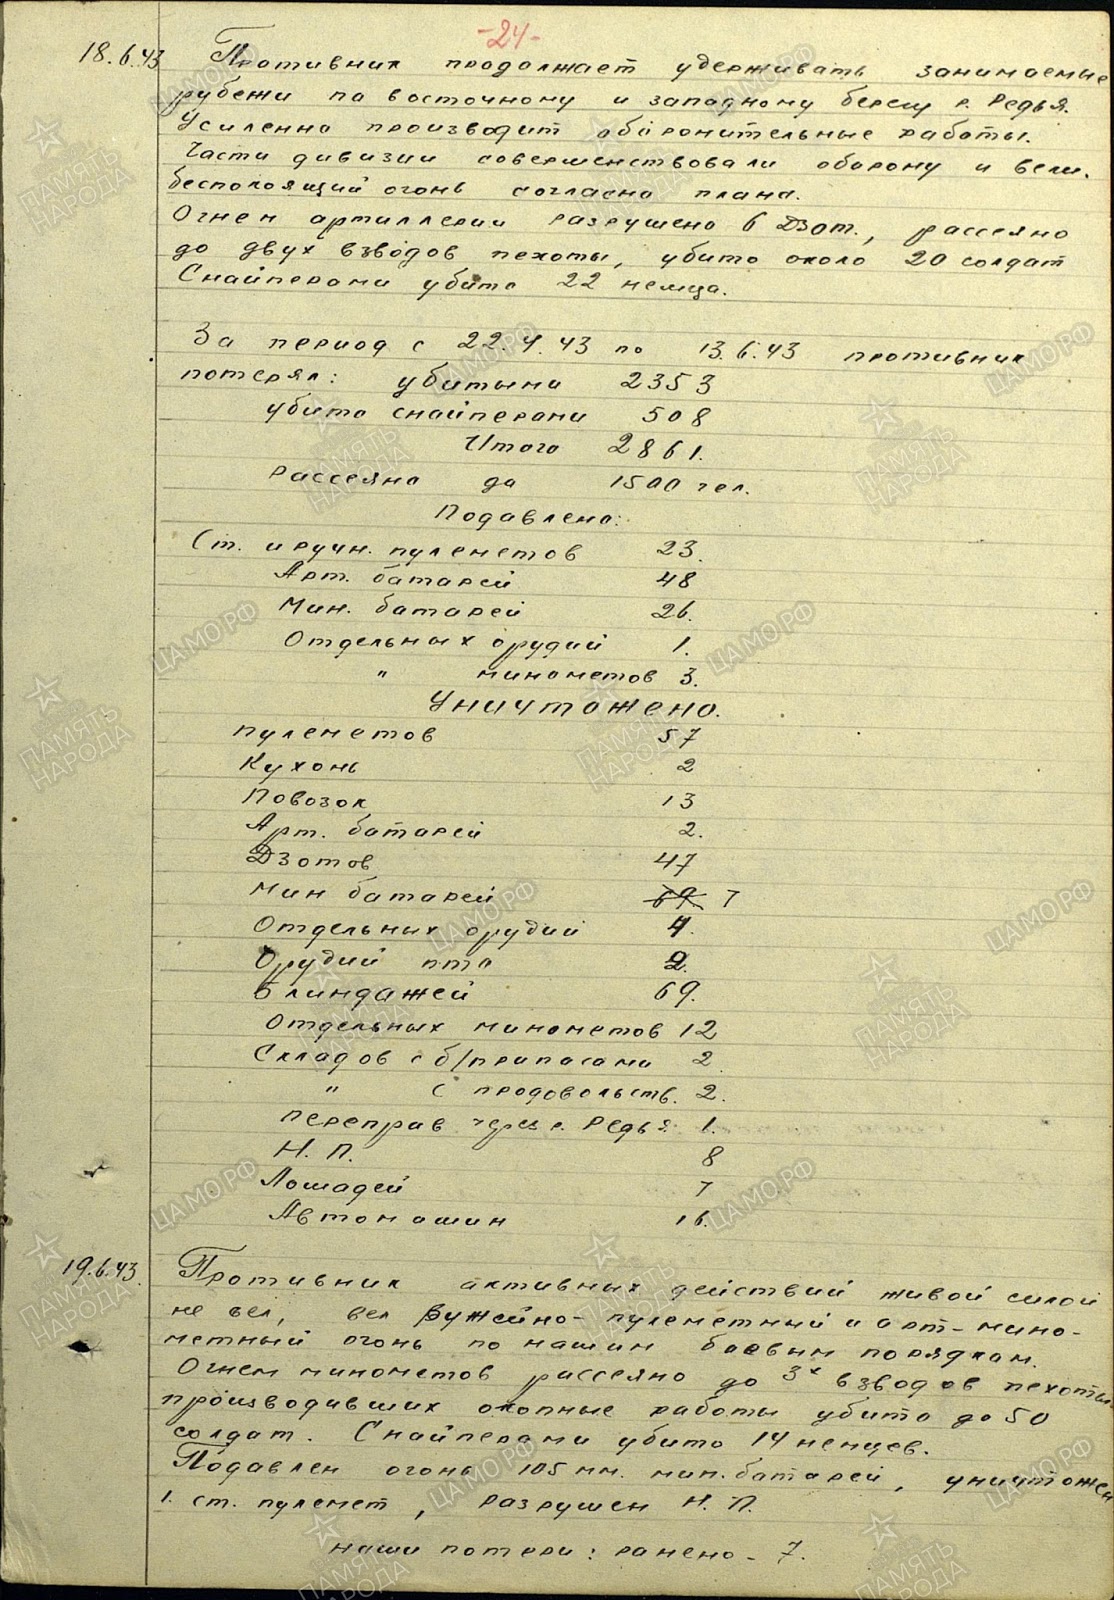 -24-
18.6.43 Противник продолжает удерживать занимаемые
рубежи по восточному и западному берегу р. Редья.
Усиленно производит оборонительные работы.
Части дивизии совершенствовали оборону и вели.
беспокоящий огонь согласно плана.
Огнем артиллерии разрушено 6 Дзот., рассеяно
до двух взводов пехоты, убито около 20 солдат
Снайперами убито 22 немца.
За период с 22.4.43 по 13.6.43 противник
потерял: убитыми 2353
убито снайперами 508
Итого 2861.
Рассеяно до 1500 чел.
Подавлено:
Ст. и ручн. пулеметов 23.
Арт. батарей 48
Мин. батарей 26.
Отдельных орудий 1.
" минометов 3.
Уничтожено.
пулеметов 57
Кухонь 2
Повозок 13
Арт. батарей 2.
Дзотов 47
Мин батарей 69. 7
Отдельных орудий 4.
Орудий пто 2.
Блиндажей 69.
Отдельных минометов 12
Складов с б/припасами 2
" с продовольств. 2.
Переправ через р. Редья 1.
Н. П. 8
Лошадей 7
Автомашин 16.
19.6.43. Противник активных действий живой силой
не вел, вел Ружейно-пулеметный и арт-мино-
метный огонь по нашим боевым порядкам.
Огнем минометов рассеяно до 3х взводов пехоты
производивших окопные работы убито до 50
солдат. Снайперами убито 14 немцев.
Подавлен огонь 105 мм. мин. батарей, уничтожен
1. ст. пулемет, разрушен Н. П.
наши потери: ранено - 7.
ПАМЯТЬ НАРОДА
ЦАМО РФ